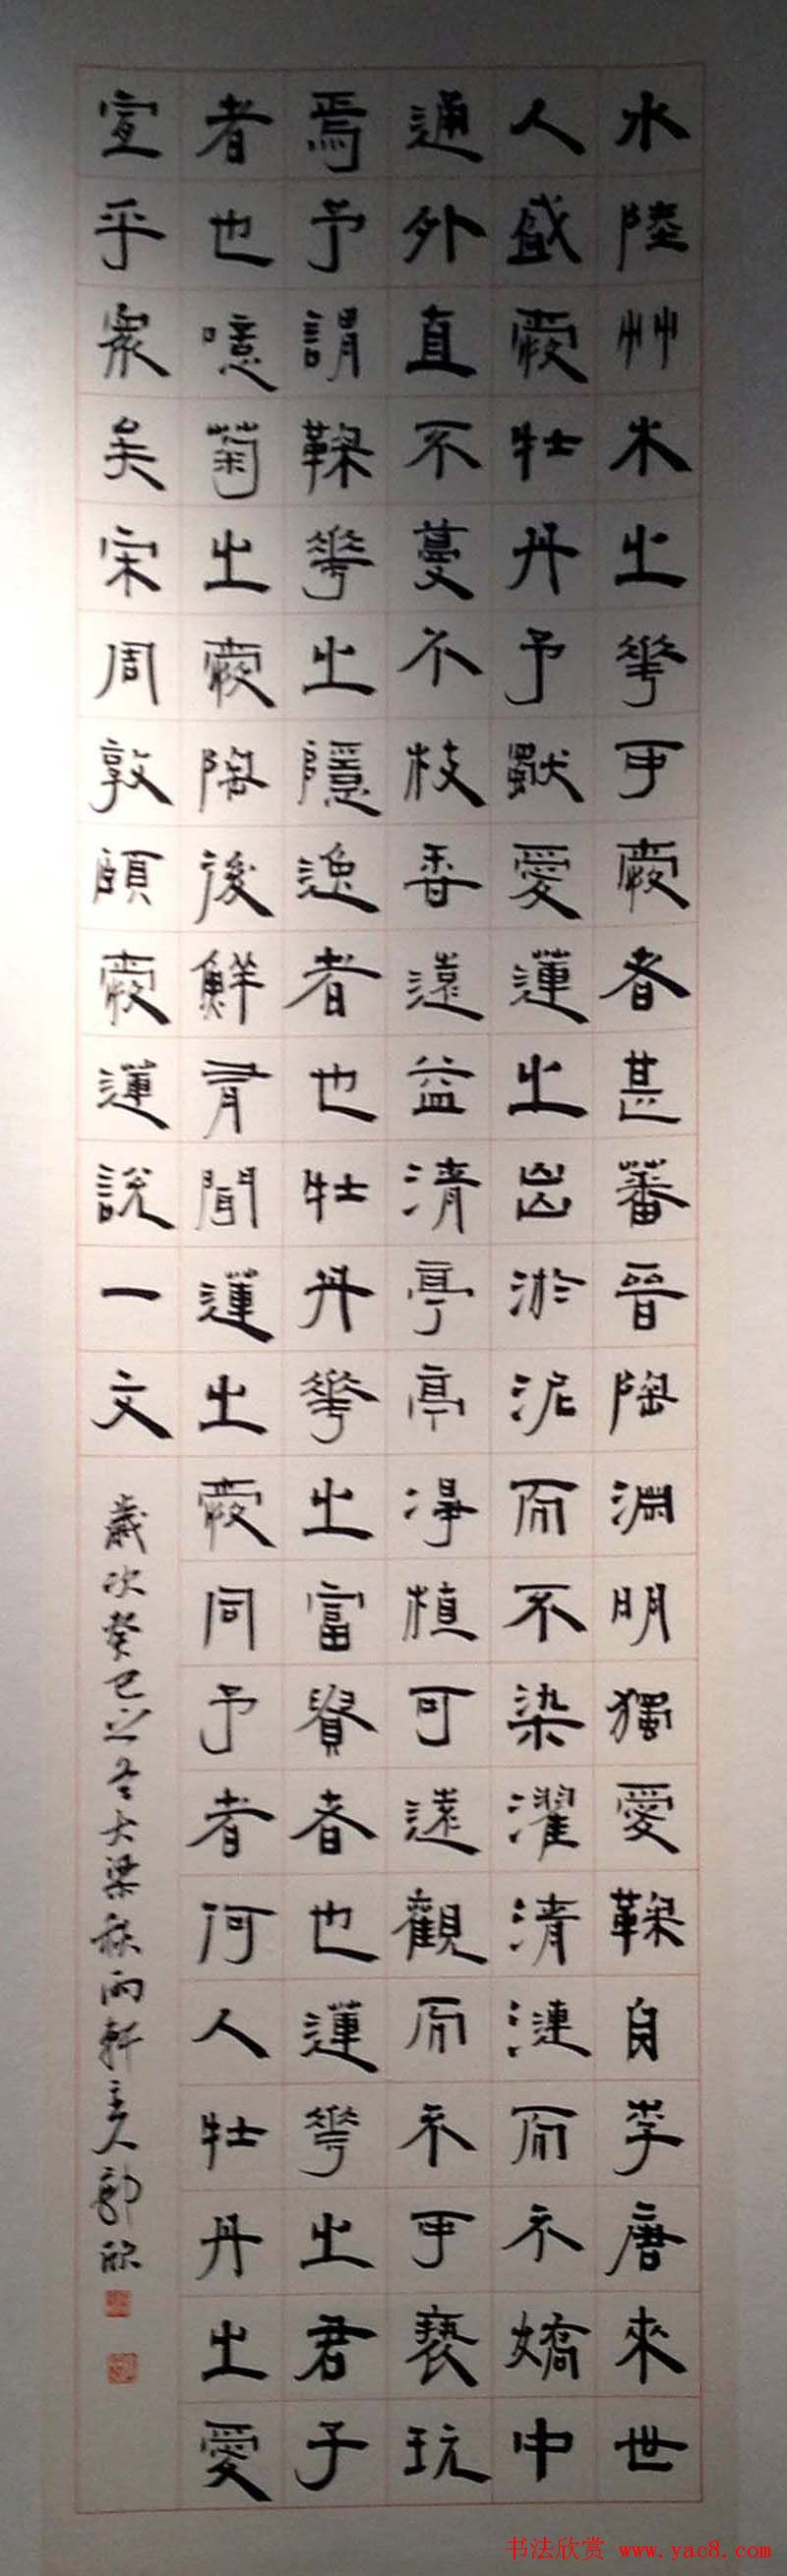 水陸艸木之華可愛者甚蕃晉陶淵明獨愛鞠自李唐來世
人盛愛牡丹予獨愛蓮之出淤泥而不染濯清漣而不嬌中
通外直不蔓不枝香遠益清亭亭凈植可遠觀而不可褻玩
焉予謂鞠華之隱逸者也牡丹華之富貴者也蓮華之君子
者也噫菊之愛陶後鮮有聞蓮之愛同予者何人牡丹之愛
宜乎眾矣宋周敦頤愛蓮說一文
歲次癸巳之冬大梁秋雨軒主人郭欣
书法欣赏 www.yac8.com